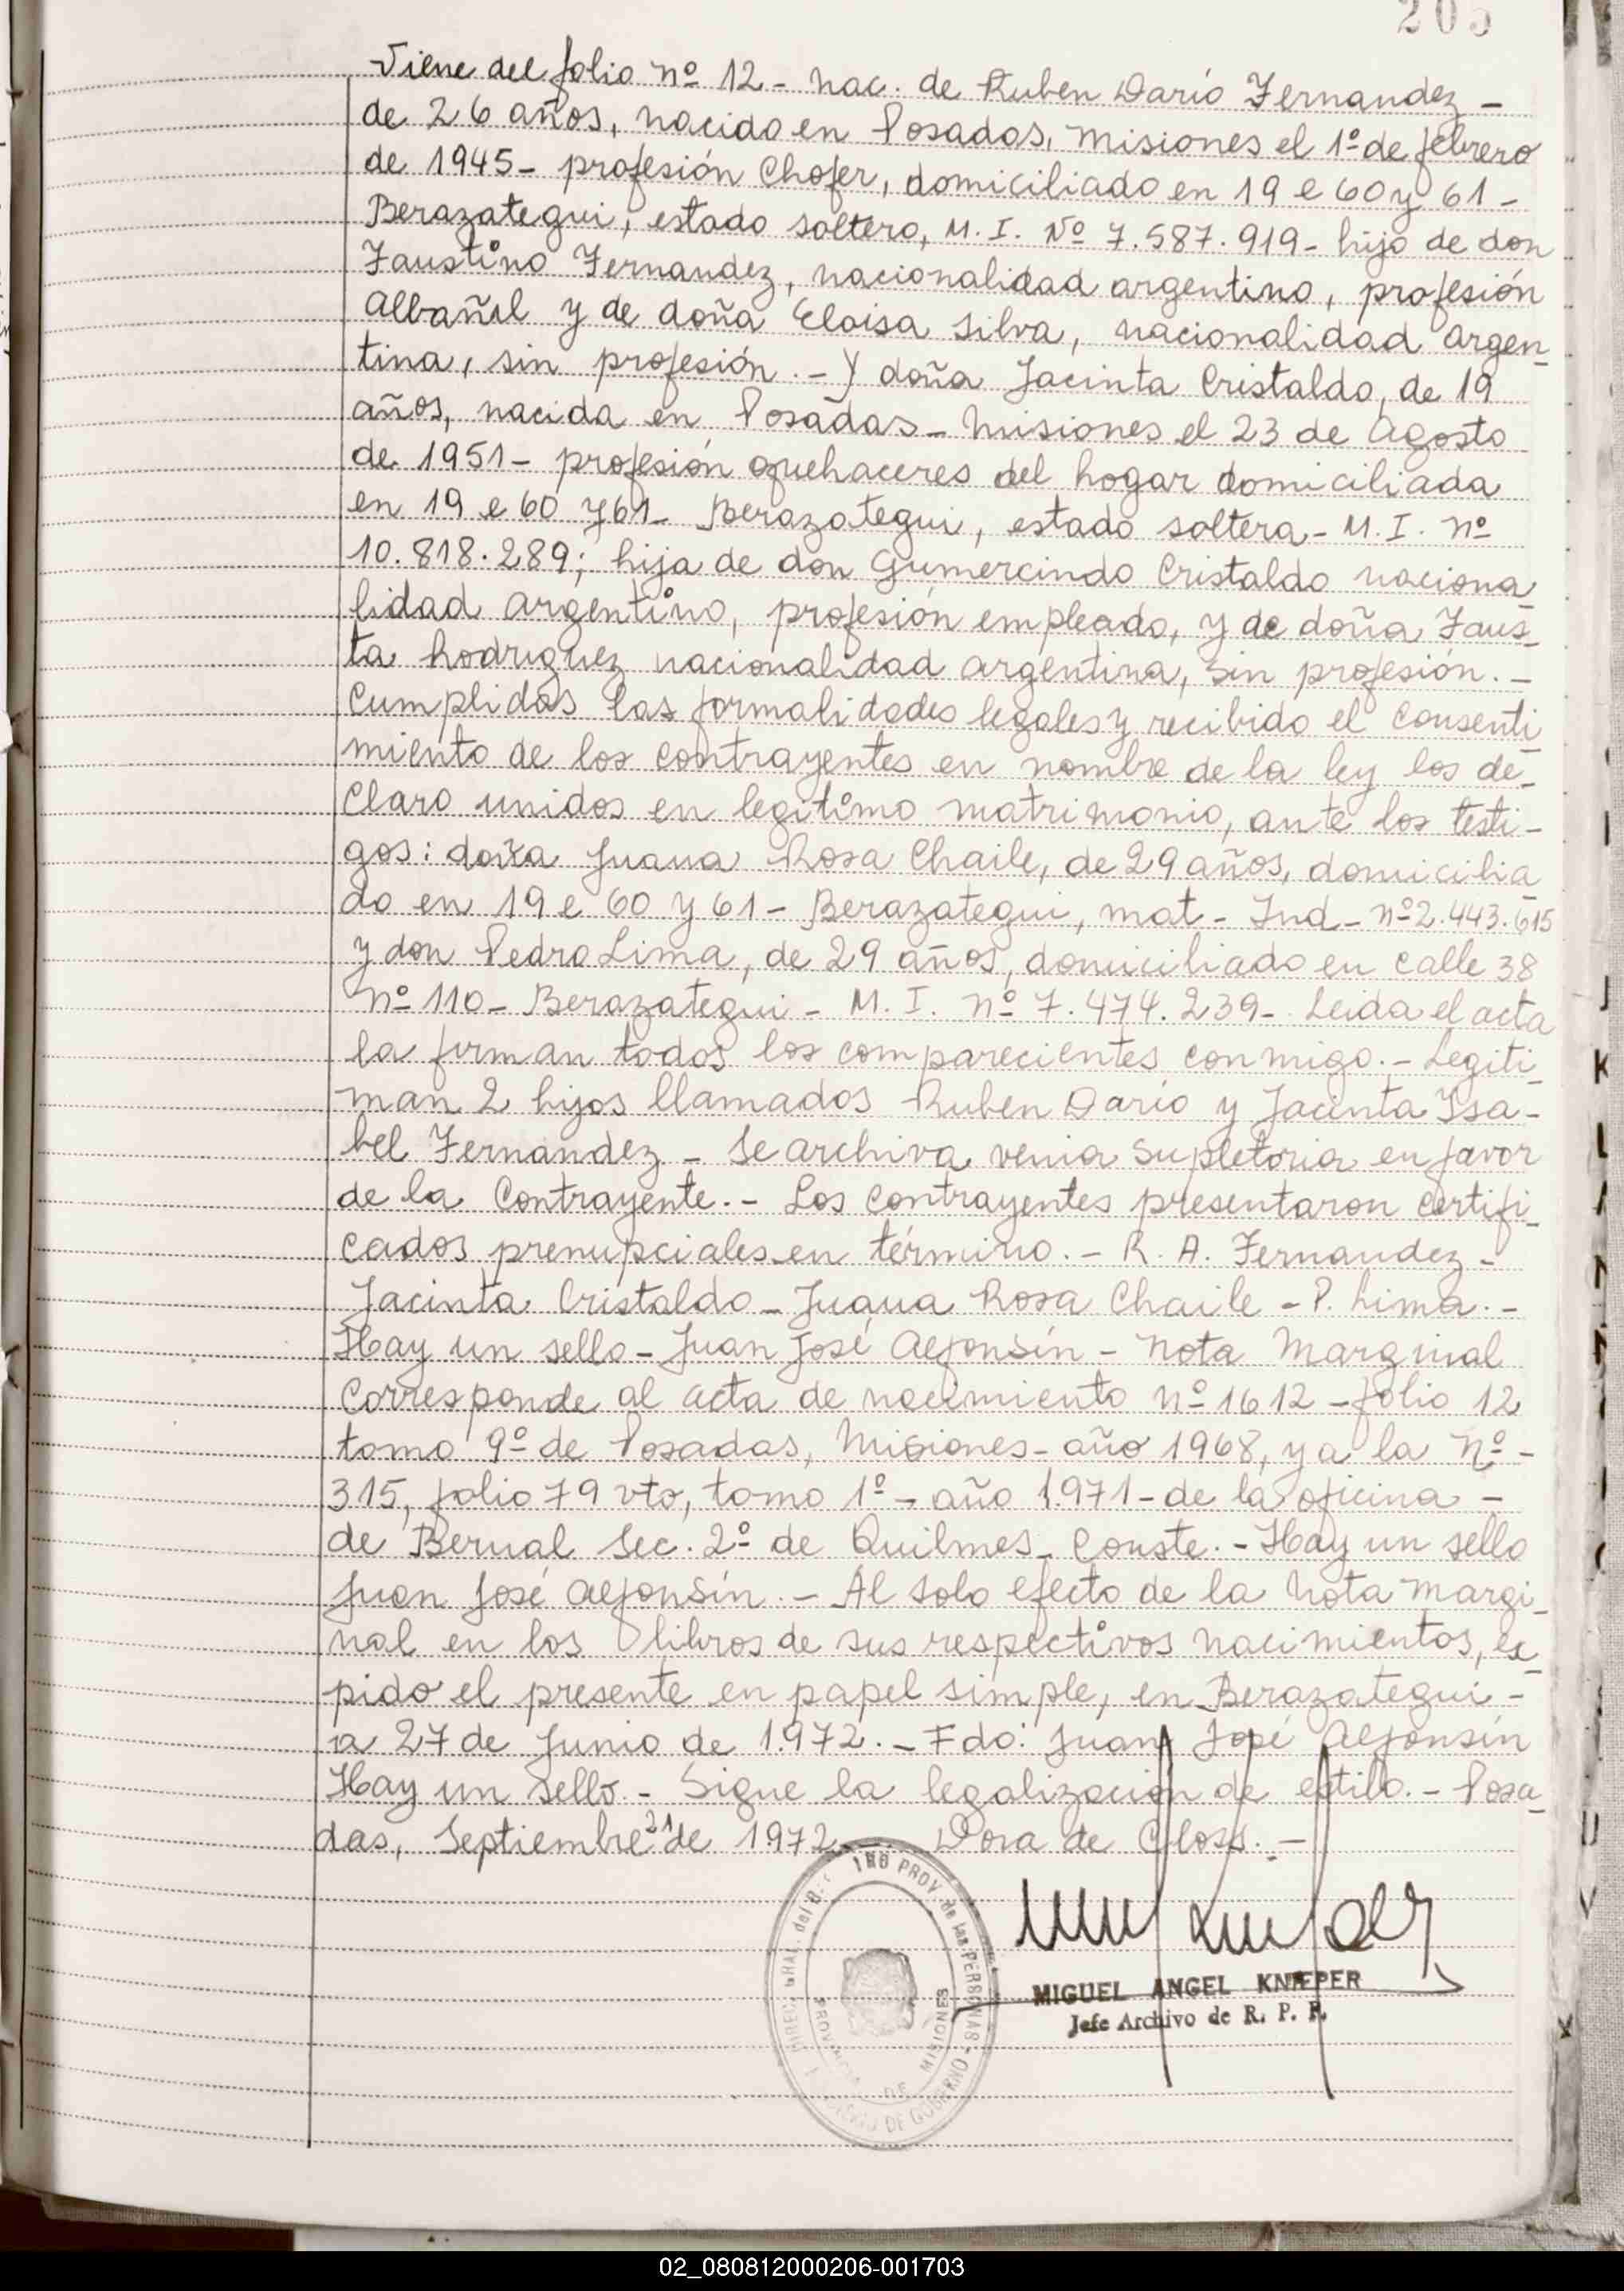 205
Viene del folio nº 12 - Nac. de Ruben Darío Fernandez -
de 26 años, nacido en Posadas, Misiones el 1º de febrero
de 1945 - profesión Chofer, domiciliado en 19 e 60 y 61 -
Berazategui, estado soltero, M. I. Nº 7.587.919 - hijo de don
Faustino Fernandez, nacionalidad argentino, profesión
Albañil y de doña Eloisa Silva, nacionalidad argen-
tina, sin profesión. - Y doña Jacinta Cristaldo, de 19
años, nacida en Posadas - Misiones el 23 de Agosto
de 1951 - profesión quehaceres del hogar domiciliada
en 19 e 60 y 61 - Berazategui, estado soltera - M. I. Nº
10.818.289; hija de don Gumercindo Cristaldo naciona-
lidad argentino, profesión empleado, y de doña Faus-
ta Rodriguez nacionalidad argentina, sin profesión. -
Cumplidas las formalidades legales y recibido el consenti-
miento de los contrayentes en nombre de la ley los de-
claro unidos en legítimo matrimonio, ante los testi-
gos: doña Juana Rosa Chaile, de 29 años, domicilia-
do en 19 e 60 y 61 - Berazategui, mat - Ind - nº 2.443.615
y don Pedro Lima, de 29 años, domiciliado en calle 38
Nº 110 - Berazategui - M. I. nº 7.474.239 - Leida el acta
la firman todos los comparecientes conmigo. - Legiti-
man 2 hijos llamados Ruben Darío y Jacinta Isa-
bel Fernández - Se archiva venia supletoria en favor
de la Contrayente. - Los contrayentes presentaron certifi-
cados prenupciales en término. - R. A. Fernandez -
Jacinta Cristaldo - Juana Rosa Chaile - P. Lima. -
Hay un sello - Juan José Alfonsín - Nota Marginal
Corresponde al acta de nacimiento nº 1612 - folio 12
tomo 9º de Posadas, Misiones - año 1968, y a la Nº -
315, folio 79 vto, tomo 1º - año 1.971 - de la oficina -
de Bernal Sec. 2º de Quilmes - Conste. - Hay un sello
Juan José Alfonsín. - Al solo efecto de la Nota margi-
nal en los libros de sus respectivos nacimientos, ex-
pido el presente en papel simple, en Berazategui -
a 27 de Junio de 1.972. - Fdo: Juan José Alfonsín
Hay un sello. - Sigue la legalización de estilo. - Posa-
das, Septiembre 21 de 1972. - Dora de Closs. -
PROV. de las PERSONAS
PROVINCIA DE MISIONES
DE GOBIERNO
MIGUEL ANGEL KNIEPER
Jefe Archivo de R. P. P.
02_080812000206-001703